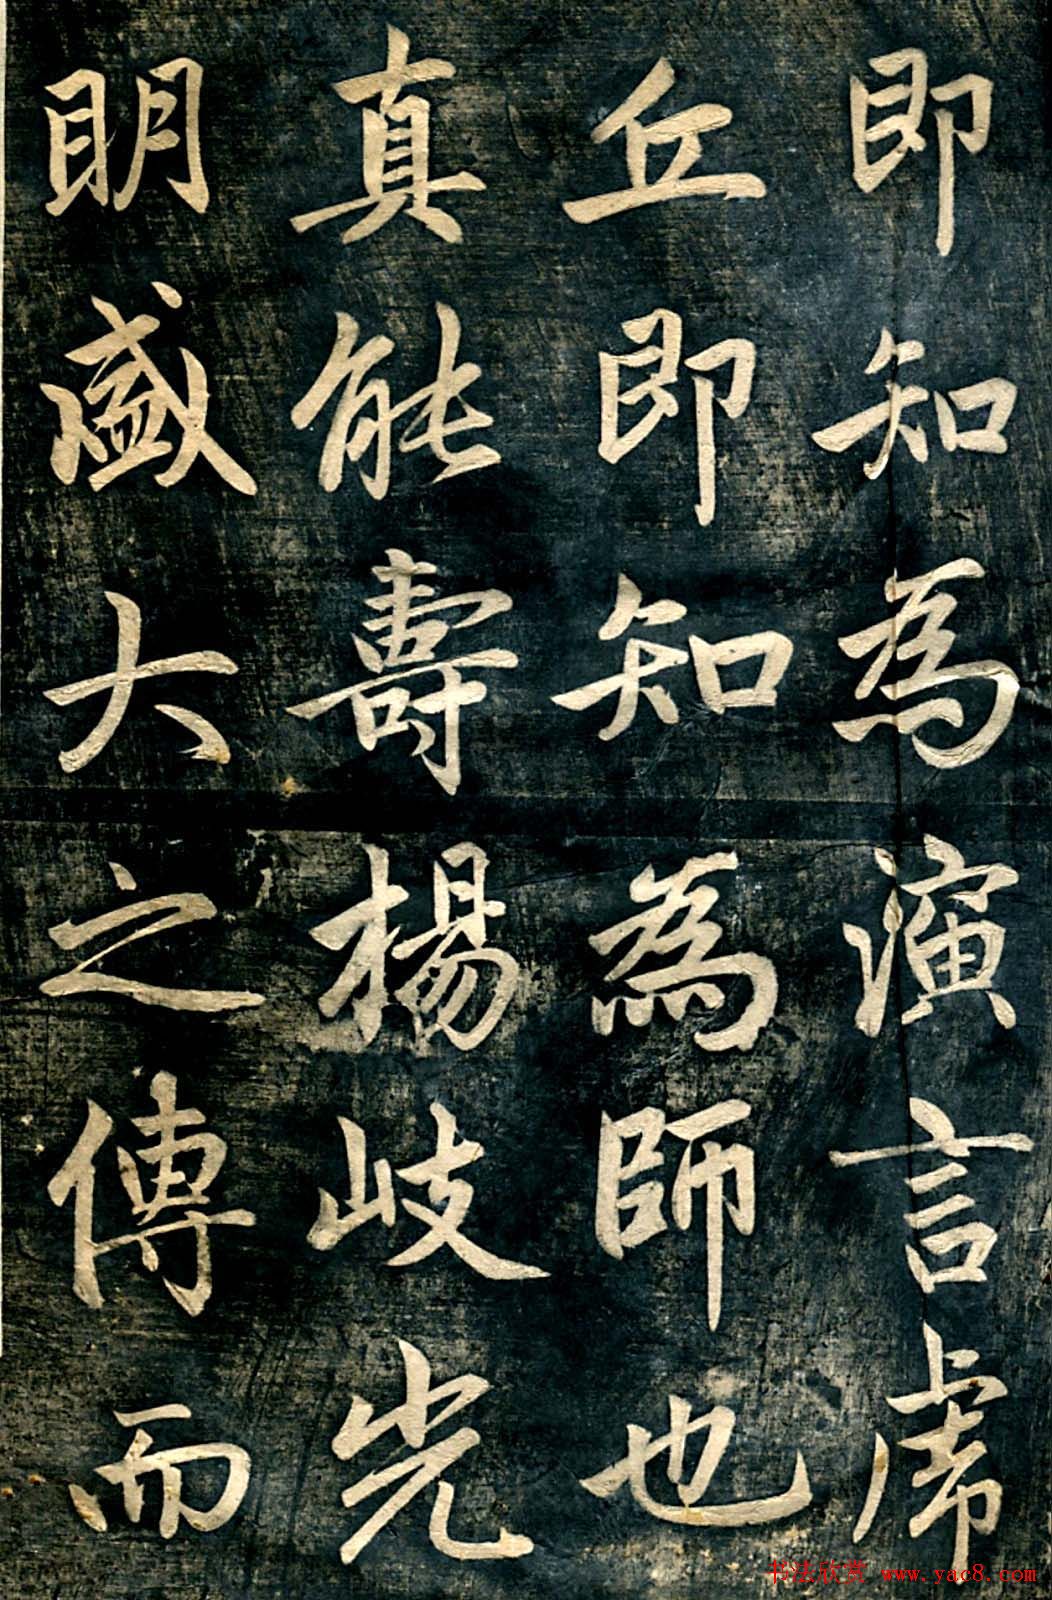 即知為演言虎
丘即知為師也
真能壽楊岐光
明盛大之傳而
书法欣赏 www.yac8.com